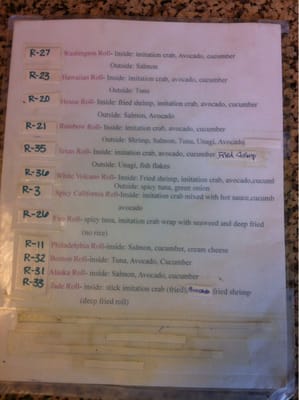 R-27 Washington Roll- Inside: imitation crab, Avocado, cucumber
Outside: Salmon
R-23 Hawaiian Roll- Inside: imitation crab, avocado, cucumber
Outside: Tuna
R-20 House Roll- Inside: fried shrimp, imitation crab, avocado, cucumber
Outside: Salmon, Avocado
R-21 Rainbow Roll- Inside: imitation crab, avocado, cucumber
Outside: Shrimp, Salmon, Tuna, Unagi, Avocado
R-35 Texas Roll- Inside: imitation crab, avocado, cucumber, Fried Shrimp
Outside: Unagi, fish flakes
R-36 White Volcano Roll- Inside: Fried shrimp, imitation crab, avocado,cucumb
Outside: spicy tuna, green onion
R-3 Spicy California Roll-Inside: imitation crab mixed with hot sauce,cucumb
avocado
R-26 Fire Roll- spicy tuna, imitation crab wrap with seaweed and deep fried
(no rice)
R-11 Philadelphia Roll-inside: Salmon, cucumber, cream cheese
R-32 Boston Roll-inside: Tuna, Avocado, Cucumber
R-31 Alaska Roll- inside: Salmon, Avocado, cucumber
R-33 Jade Roll- inside: stick imitation crab (fried), Avocado fried shrimp
(deep fried roll)